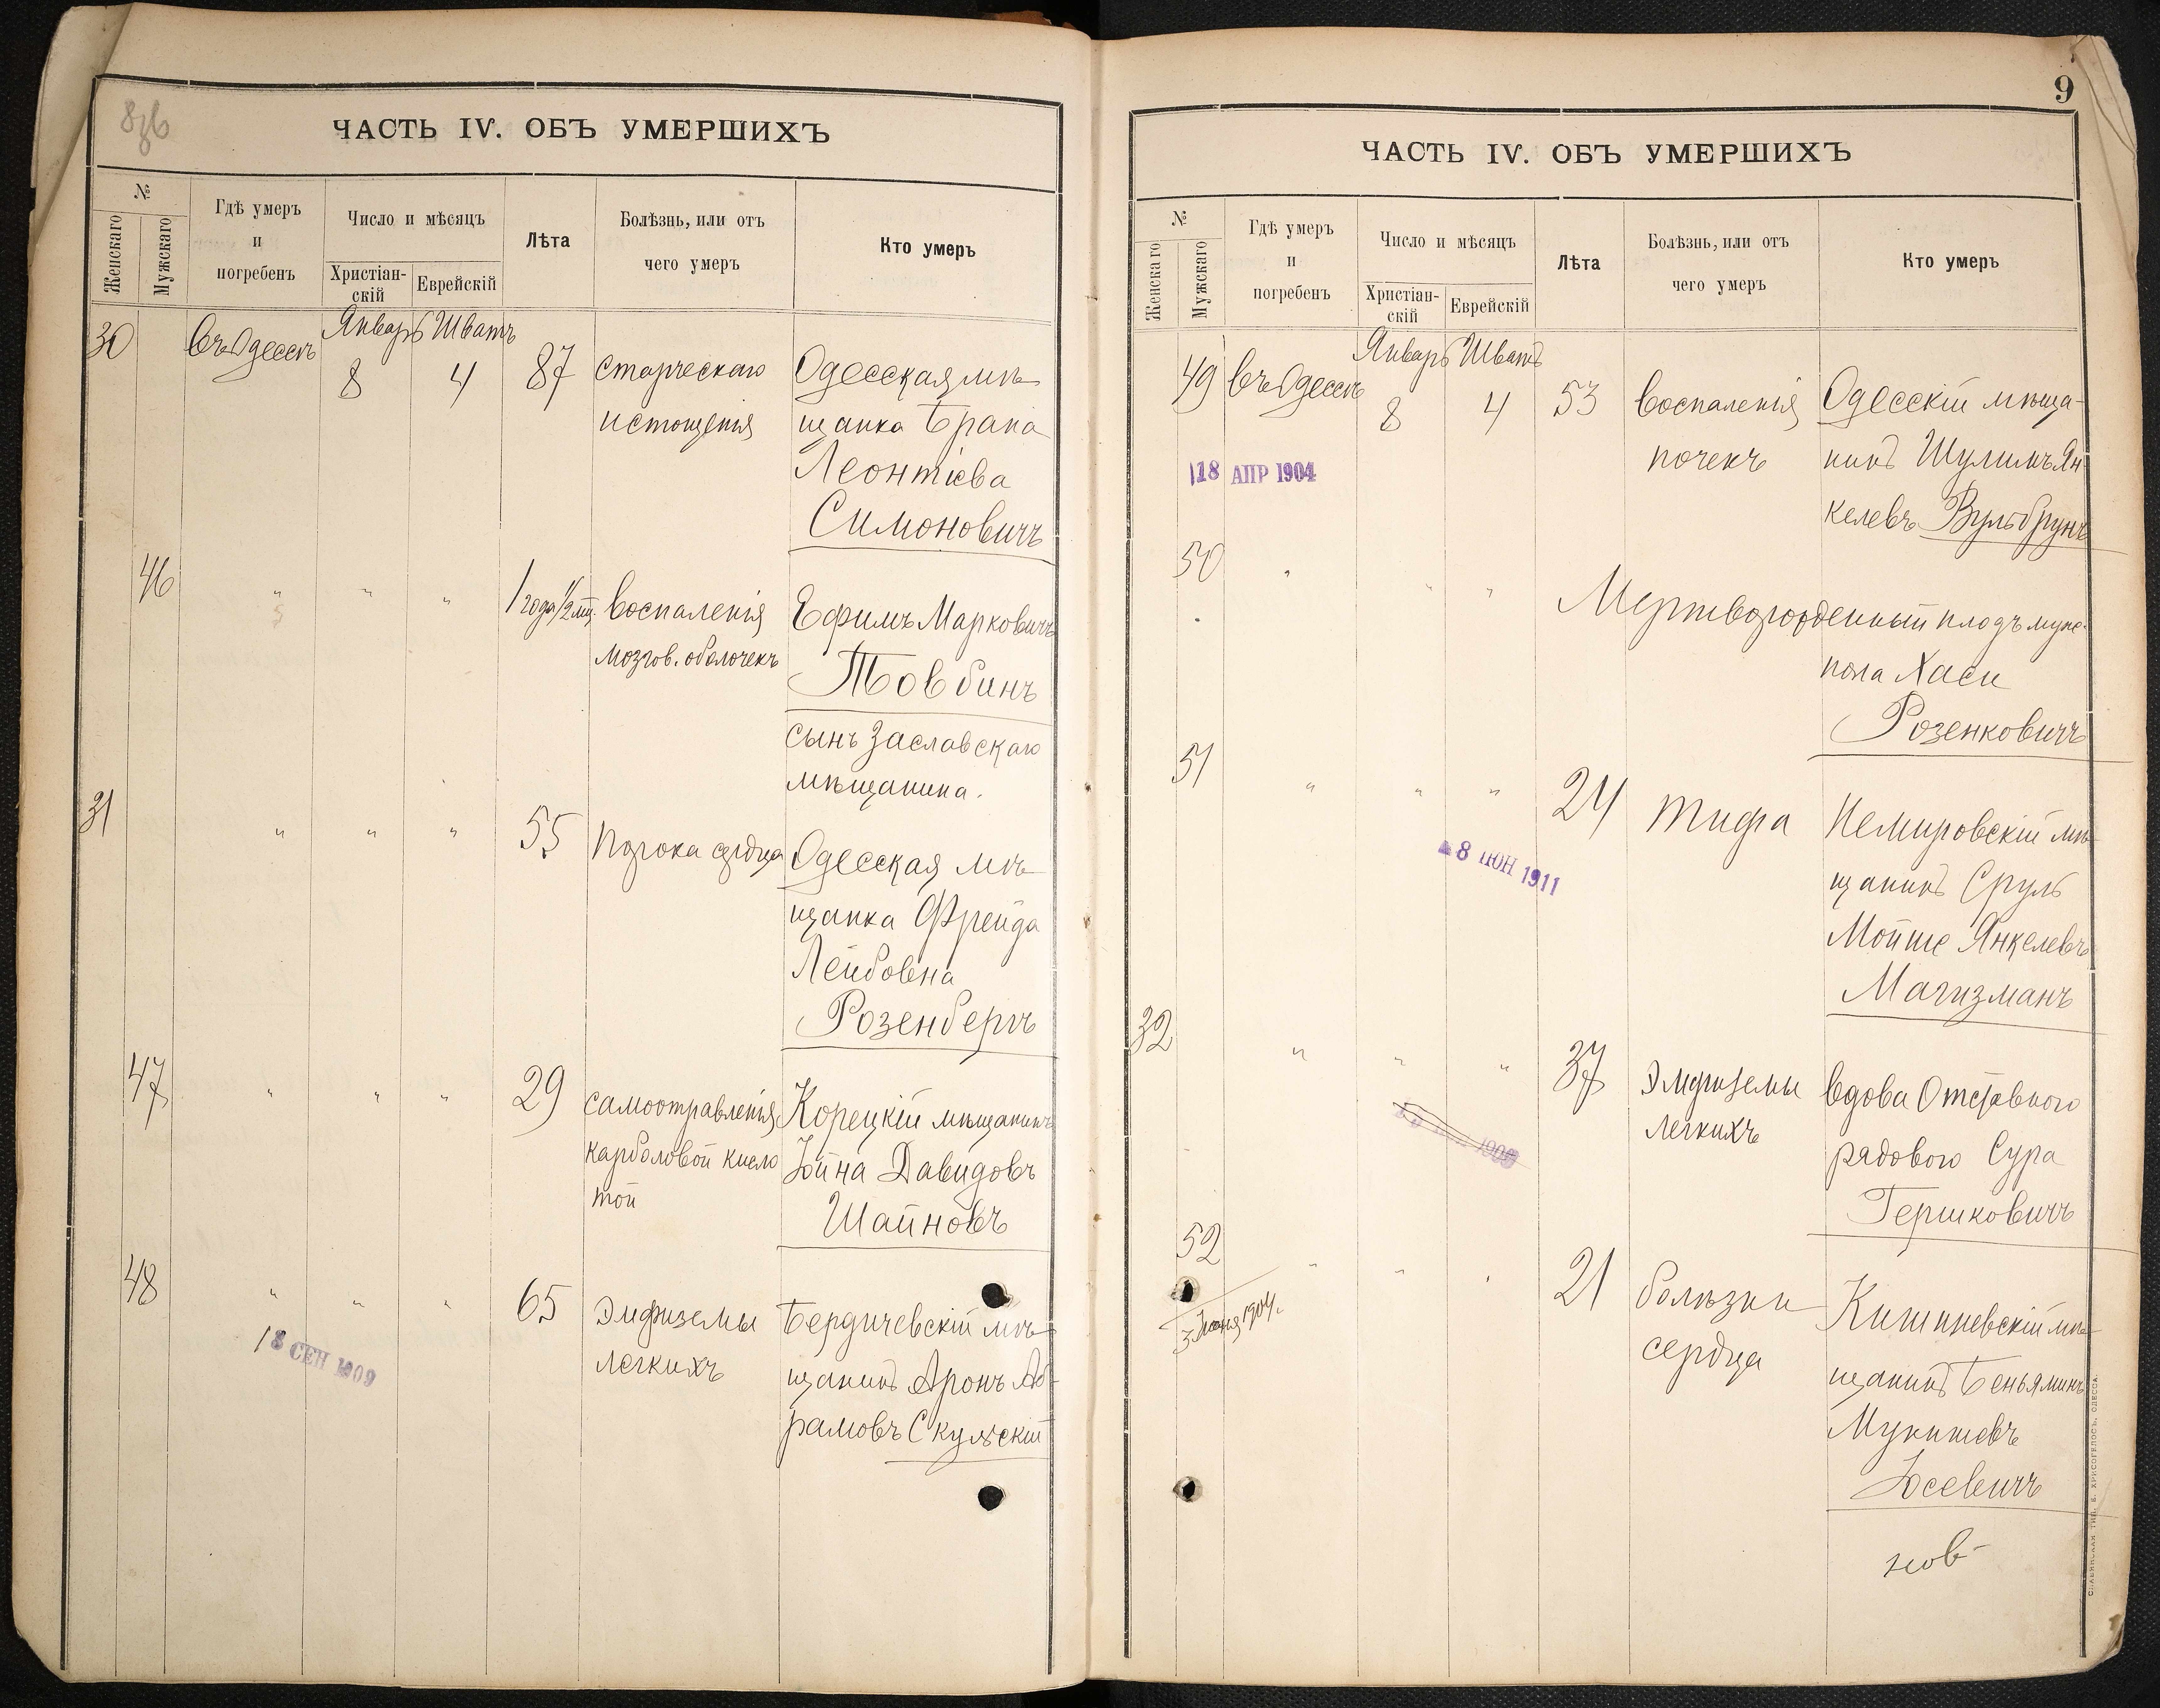 8об
ЧАСТЬ IV. ОБЪ УМЕРШИХЪ
№
Женскаго
Мужскаго
Гдѣ умеръ
и
погребенъ
Число и мѣсяцъ
Христіан-
скій
Еврейскій
Лѣта
Болѣзнь, или отъ
чего умеръ
Кто умеръ
30 въ Одессѣ Январь Шватъ
8 4 87 старческаго Одесская мѣ-
истощенія щанка Брана
Леонтіева
Симоновичъ
46 " " " 1 года 1/2 мц. воспаленія Ефимъ Марковичъ
мозгов. оболочекъ Товбинъ
сынъ Заславскаго
мѣщанина.
31 " " " 55 Порока сердца Одесская мѣ-
щанка Фрейда
Лейбовна
Розенбергъ
47 " " " 29 самоотравленія Корецкій мѣщанинъ
карболовой кисло Іойна Давидовъ
той Шайновъ
48 " " " 65 эмфиземы Бердичевскій мѣ-
легкихъ щанинъ Аронъ Аб-
рамовъ Скульскій
18 СЕН 1909
9
ЧАСТЬ IV. ОБЪ УМЕРШИХЪ
№
Женскаго
Мужскаго
Гдѣ умеръ
и
погребенъ
Число и мѣсяцъ
Христіан-
скій
Еврейскій
Лѣта
Болѣзнь, или отъ
чего умеръ
Кто умеръ
49 въ Одессѣ Январь Шватъ
8 4 53 воспаленія Одесскій мѣща-
почекъ нинъ Шулимъ Ян
келевъ Вульбрунъ
18 АПР 1904
50 " " " Мертворожденный плодъ муж.
пола Хаси
Розенковичъ
51 " " " 24 тифа Немировскій мѣ-
щанинъ Сруль
Мойше Янкелевъ
Магизманъ
8 ІЮН 1911
32 " " " 37 эмфиземы вдова Отставного
легкихъ рядового Сура
Гершковичъ
52 " " " 21 болѣзни Кишиневскій мѣ-
сердца щанинъ Беньяминъ
Мунишевъ
Іосевичъ
3 Іюня 1904.
СЛАВЯНСКАЯ ТИП. Е. ХРИСОГЕЛОСЪ, ОДЕССА.